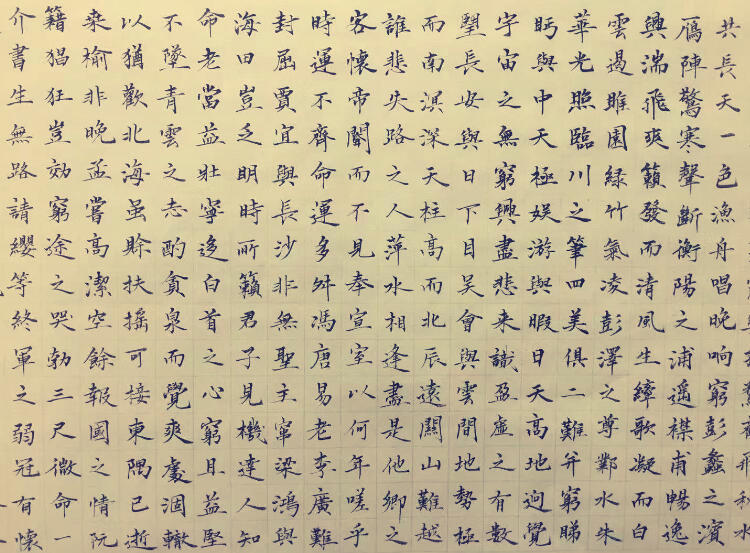 共長天一色漁舟唱晚响窮彭蠡之濱
鴈陣驚寒聲斷衡陽之浦遥襟甫暢逸
興湍飛爽籟發而清風生縴歌凝而白
雲遏睢園綠竹氣凌彭澤之尊鄴水朱
華光照臨川之筆四美俱二難并窮睇
眄與中天極娱游與暇日天高地逈覺
宇宙之無窮興盡悲來識盈虛之有数
朢長安與日下目吴會與雲間地勢極
而南溟深天柱高而北辰遠關山難越
誰悲失路之人萍水相逢盡是他鄉之
客懷帝閽而不見奉宣室以何年嗟乎
時運不齊命運多舛馮唐易老李廣難
封屈賈宜與長沙非無聖主窜梁鴻與
海曰豈乏明時所籟君子見機達人知
命老當益壯寧迻白首之心窮且益堅
不墜青雲之志酌貪泉而覺爽處涸轍
以猶歡北海虽賒扶摇可接東隅已逝
桒榆非晚孟嘗高潔空餘報國之情阮
籍猖狂豈効窮途之哭勃三尺微命一
介書生無路請纓等終軍之弱冠有懷